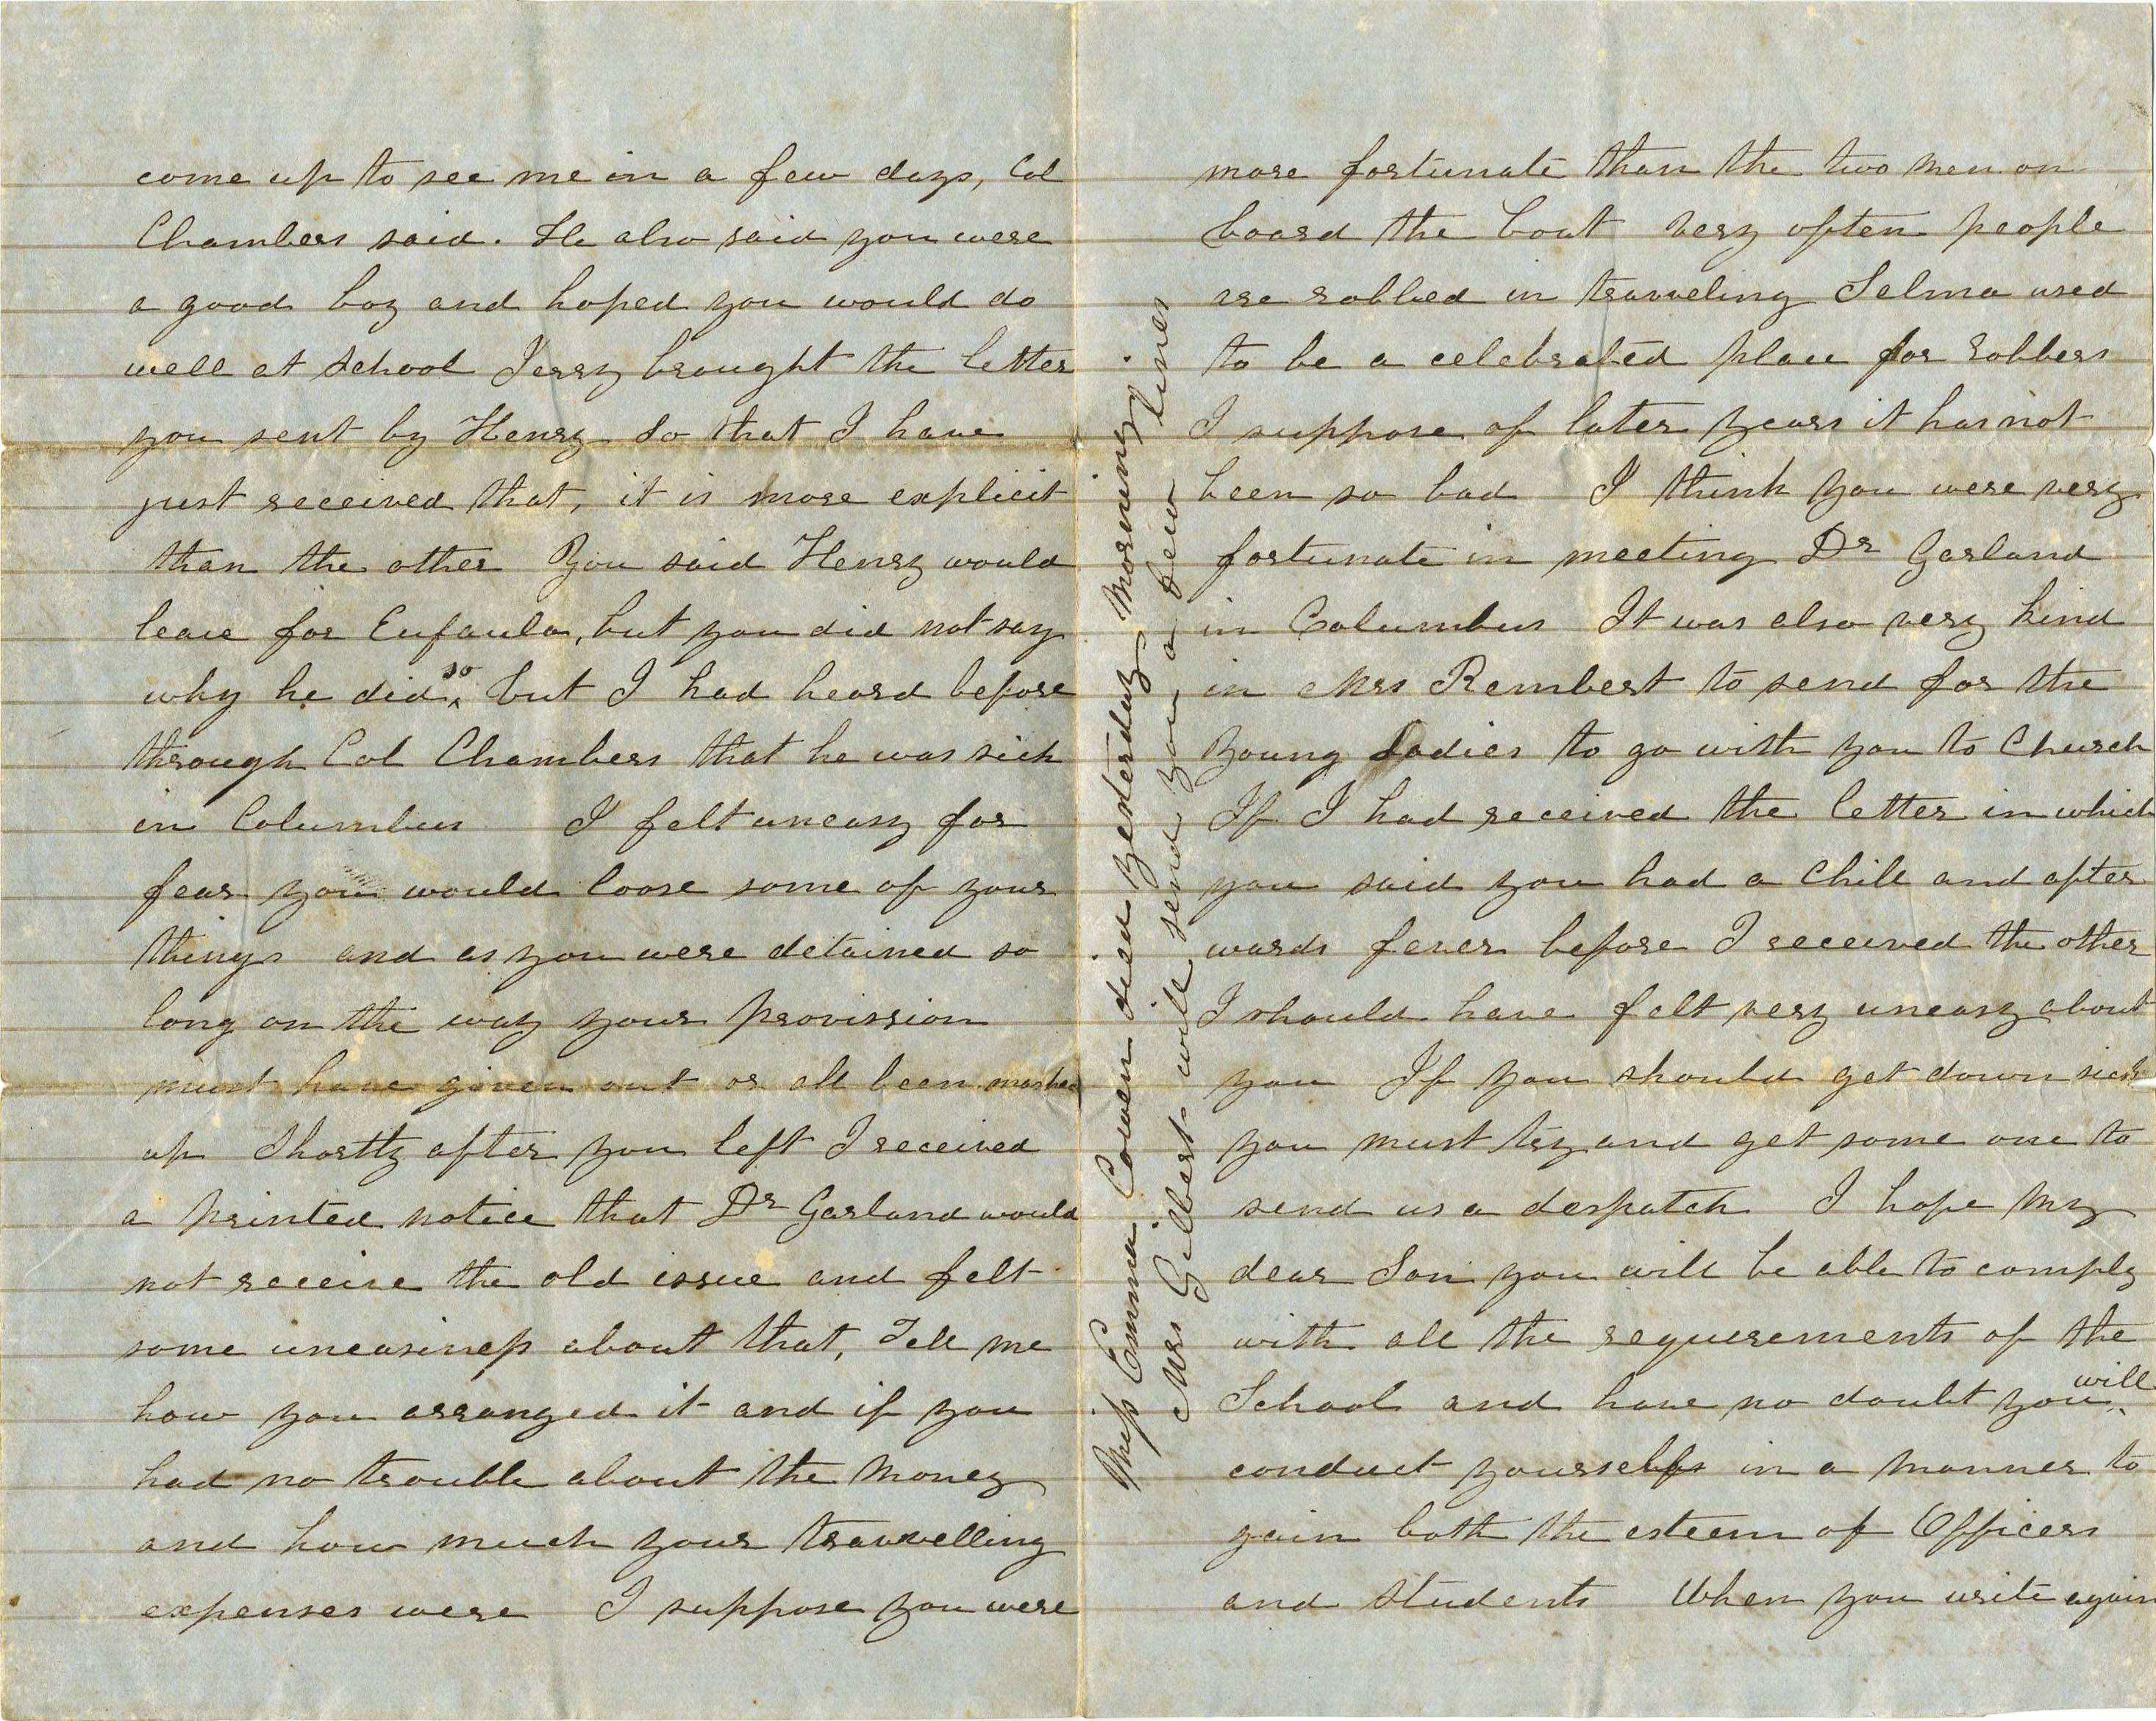 come up to see me in a few days, Col
Chambers said. He also said you were
a good boy and hoped you would do
well at school Jerry brought the letter
you sent by Henry so that I have
just received that, it is more explicit
than the other You said Henry would
leave for Eufaula, but you did not say
why he did so, but I had heard before
through Col Chambers that he was sick
in Columbus I felt uneasy for
fear you would loose some of your
things and as you were detained so
long on the way your provission
must have given out or all been mashed
up Shortly after you left I received
a printed notice that Dr Garland would
not receive the old issue and felt
some uneasiness about that, Tell me
how you arranged it and if you
had no trouble about the money
and how much your travvelling
expenses were I suppose you were
Miss Emma Cowen died yesterday morning
Mrs Gilbert will send you a few lines
more fortunate than the two men on
board the boat very often people
are robbed in travveling Selma used
to be a celebrated place for robbers
I suppose of later years it has not
been so bad I think you were very
fortunate in meeting Dr Garland
in Columbus It was also very kind
in Mrs Rembert to send for the
young Ladies to go with you to Church
If I had received the letter in which
you said you had a chill and after
wards fever before I received the other
I should have felt very uneasy about
you If you should get down sick
you must try and get some one to
send us a despatch I hope my
dear Son you will be able to comply
with all the requirements of the
School and have no doubt you will
conduct yourself in a manner to
gain both the esteem of Officers
and students When you write again